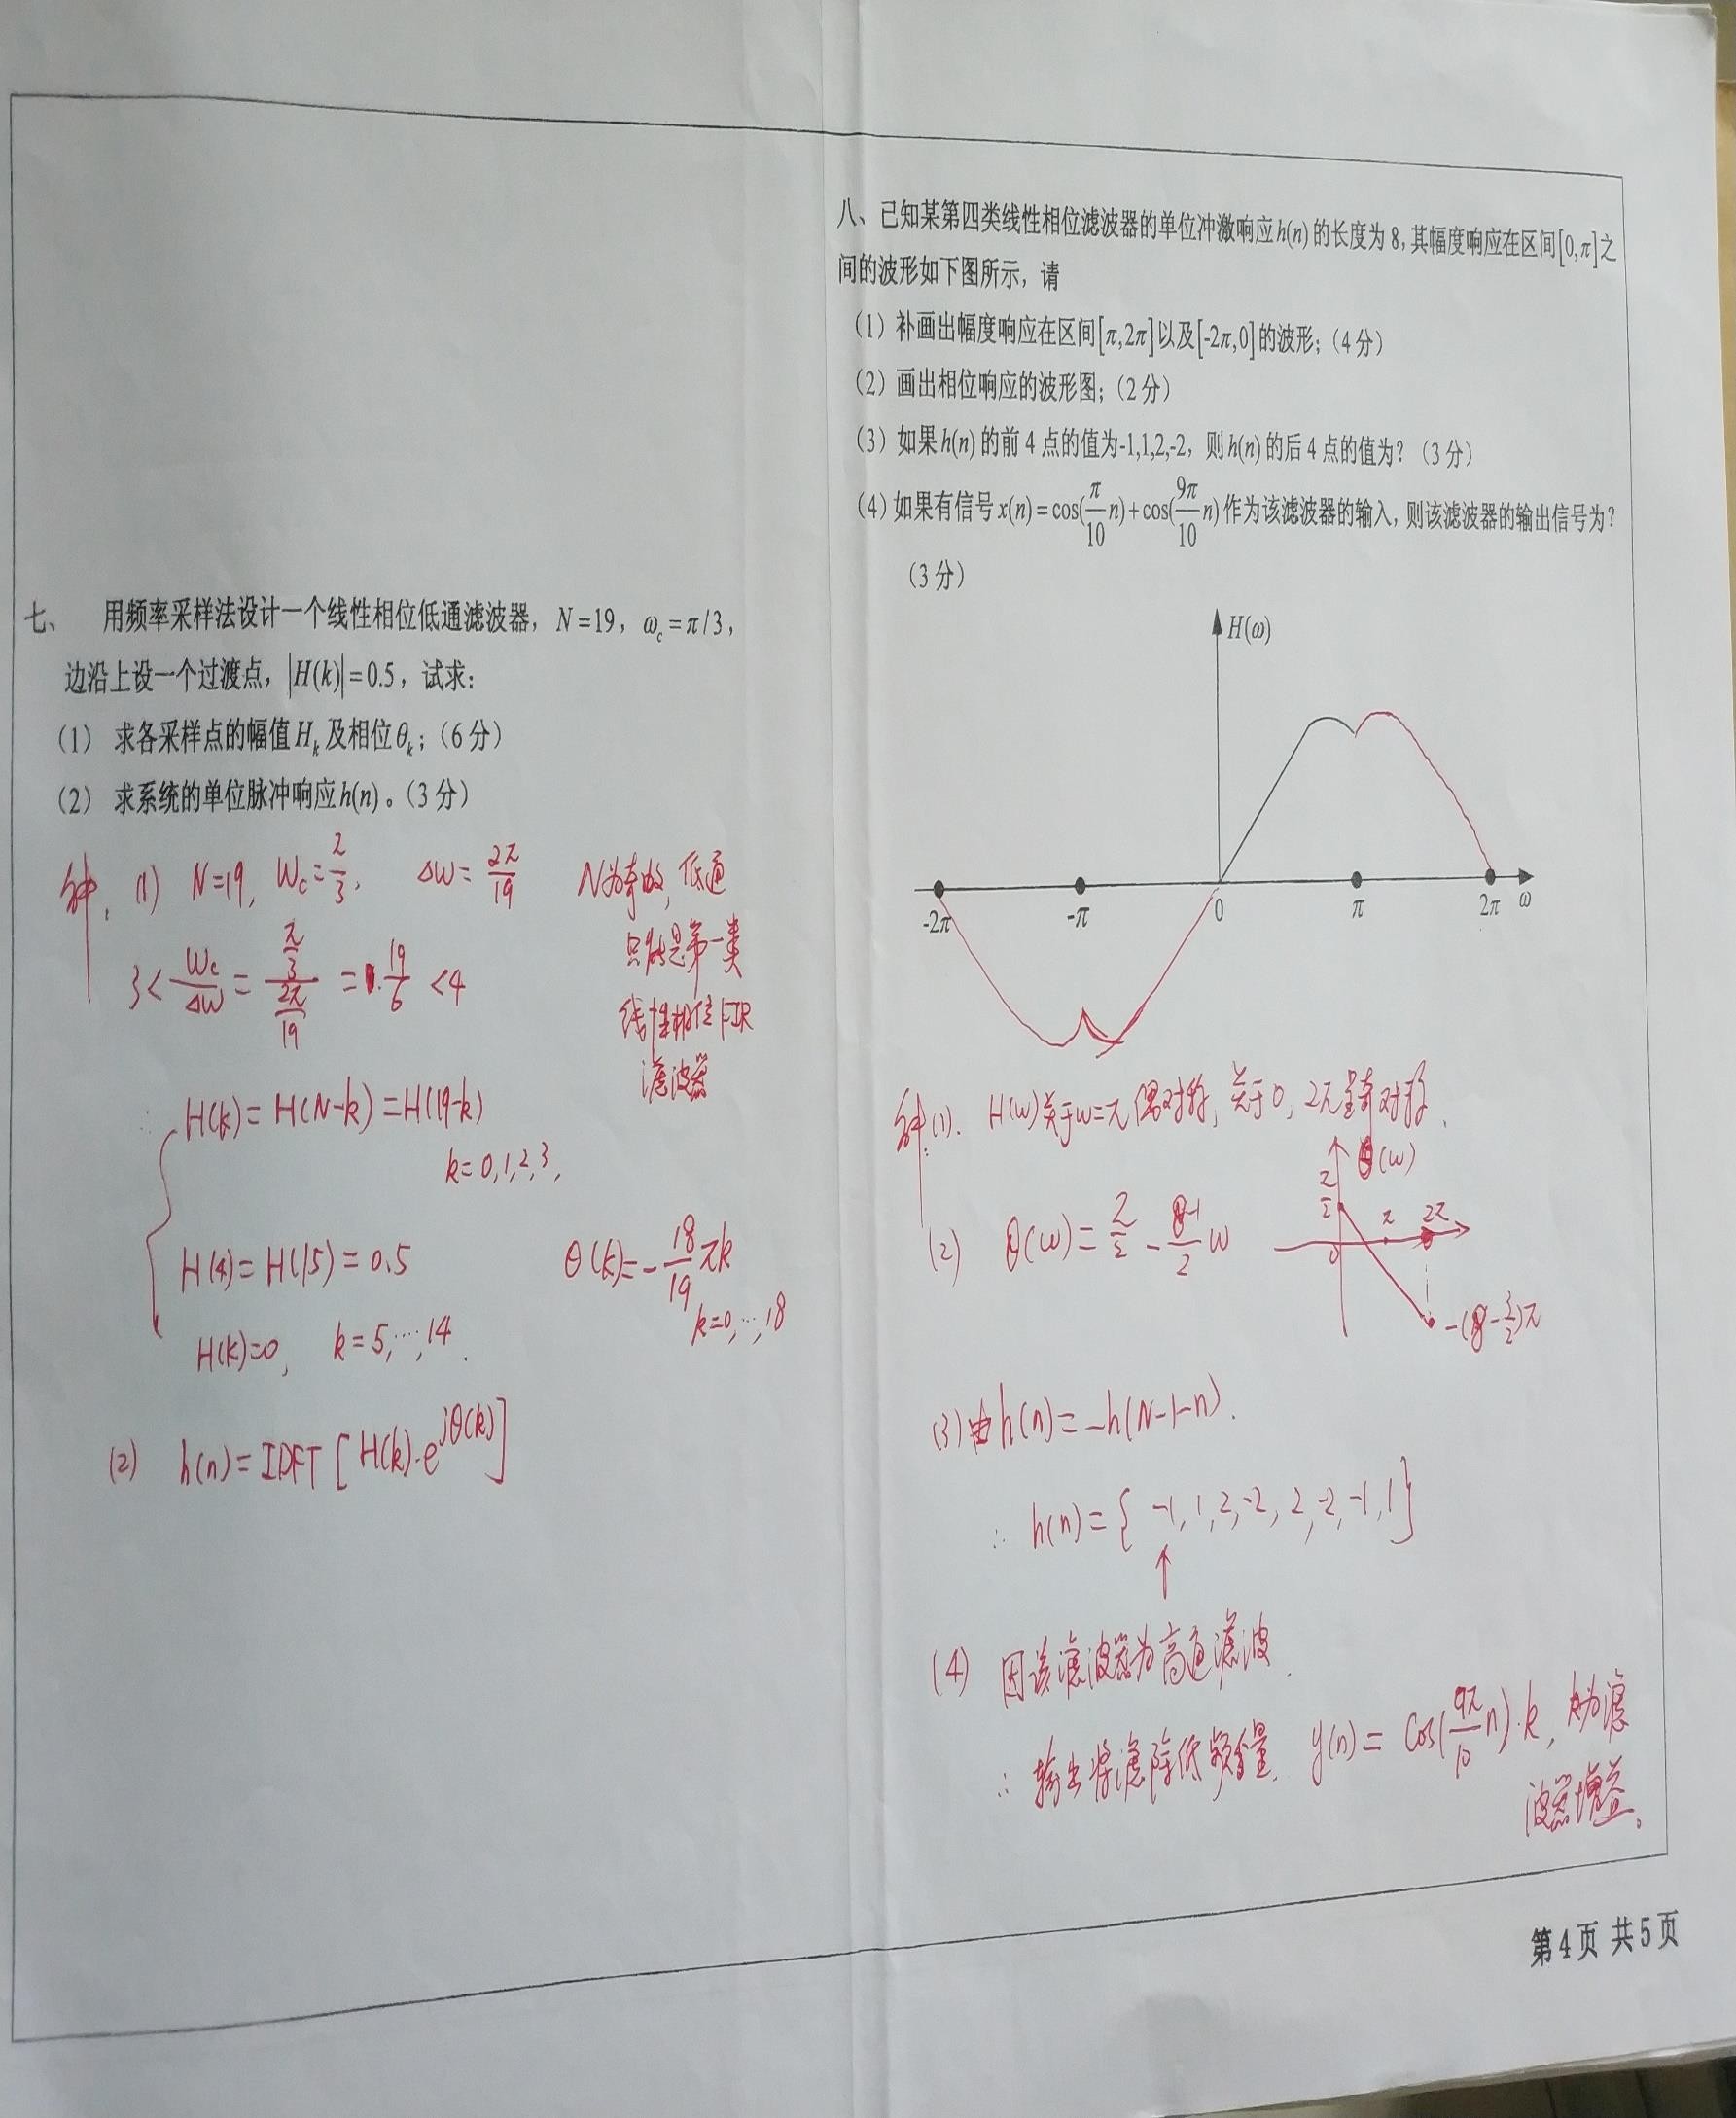 七、 用频率采样法设计一个线性相位低通滤波器，N=19，ω_c=π/3，
边沿上设一个过渡点，|H(k)|=0.5，试求：
（1） 求各采样点的幅值H_k及相位θ_k；（6分）
（2） 求系统的单位脉冲响应h(n)。（3分）
解： (1) N=19, Wc=π/3, ΔW=2π/19 N为奇数, 低通
只能是第一类
线性相位FIR
滤波器
3<Wc/ΔW=(π/3)/(2π/19)=19/6<4
∴ H(k)=H(N-k)=H(19-k)
k=0,1,2,3,
H(4)=H(15)=0.5 θ(k)=-18/19 πk
k=0,…,18
H(k)=0, k=5,…,14.
(2) h(n)=IDFT[H(k)·e^{jθ(k)}]
八、已知某第四类线性相位滤波器的单位冲激响应h(n)的长度为8,其幅度响应在区间[0,π]之
间的波形如下图所示，请
（1）补画出幅度响应在区间[π,2π]以及[-2π,0]的波形；（4分）
（2）画出相位响应的波形图；（2分）
（3）如果h(n)的前4点的值为-1,1,2,-2，则h(n)的后4点的值为？（3分）
（4）如果有信号x(n)=cos(π/10 n)+cos(9π/10 n)作为该滤波器的输入，则该滤波器的输出信号为？
（3分）
H(ω)
-2π -π 0 π 2π ω
解：(1). H(w)关于w=π偶对称, 关于0, 2π呈奇对称.
(2) θ(w)=π/2-(8-1)/2 w
θ(w)
π/2
0 π 2π
-(8-3/2)π
(3)由h(n)=-h(N-1-n).
∴ h(n)={-1,1,2,-2,2,-2,-1,1}
↑
(4) 因该滤波器为高通滤波.
∴ 输出将滤除低频分量. y(n)=cos(9π/10 n)·k, k为滤
波器增益。
第4页 共5页